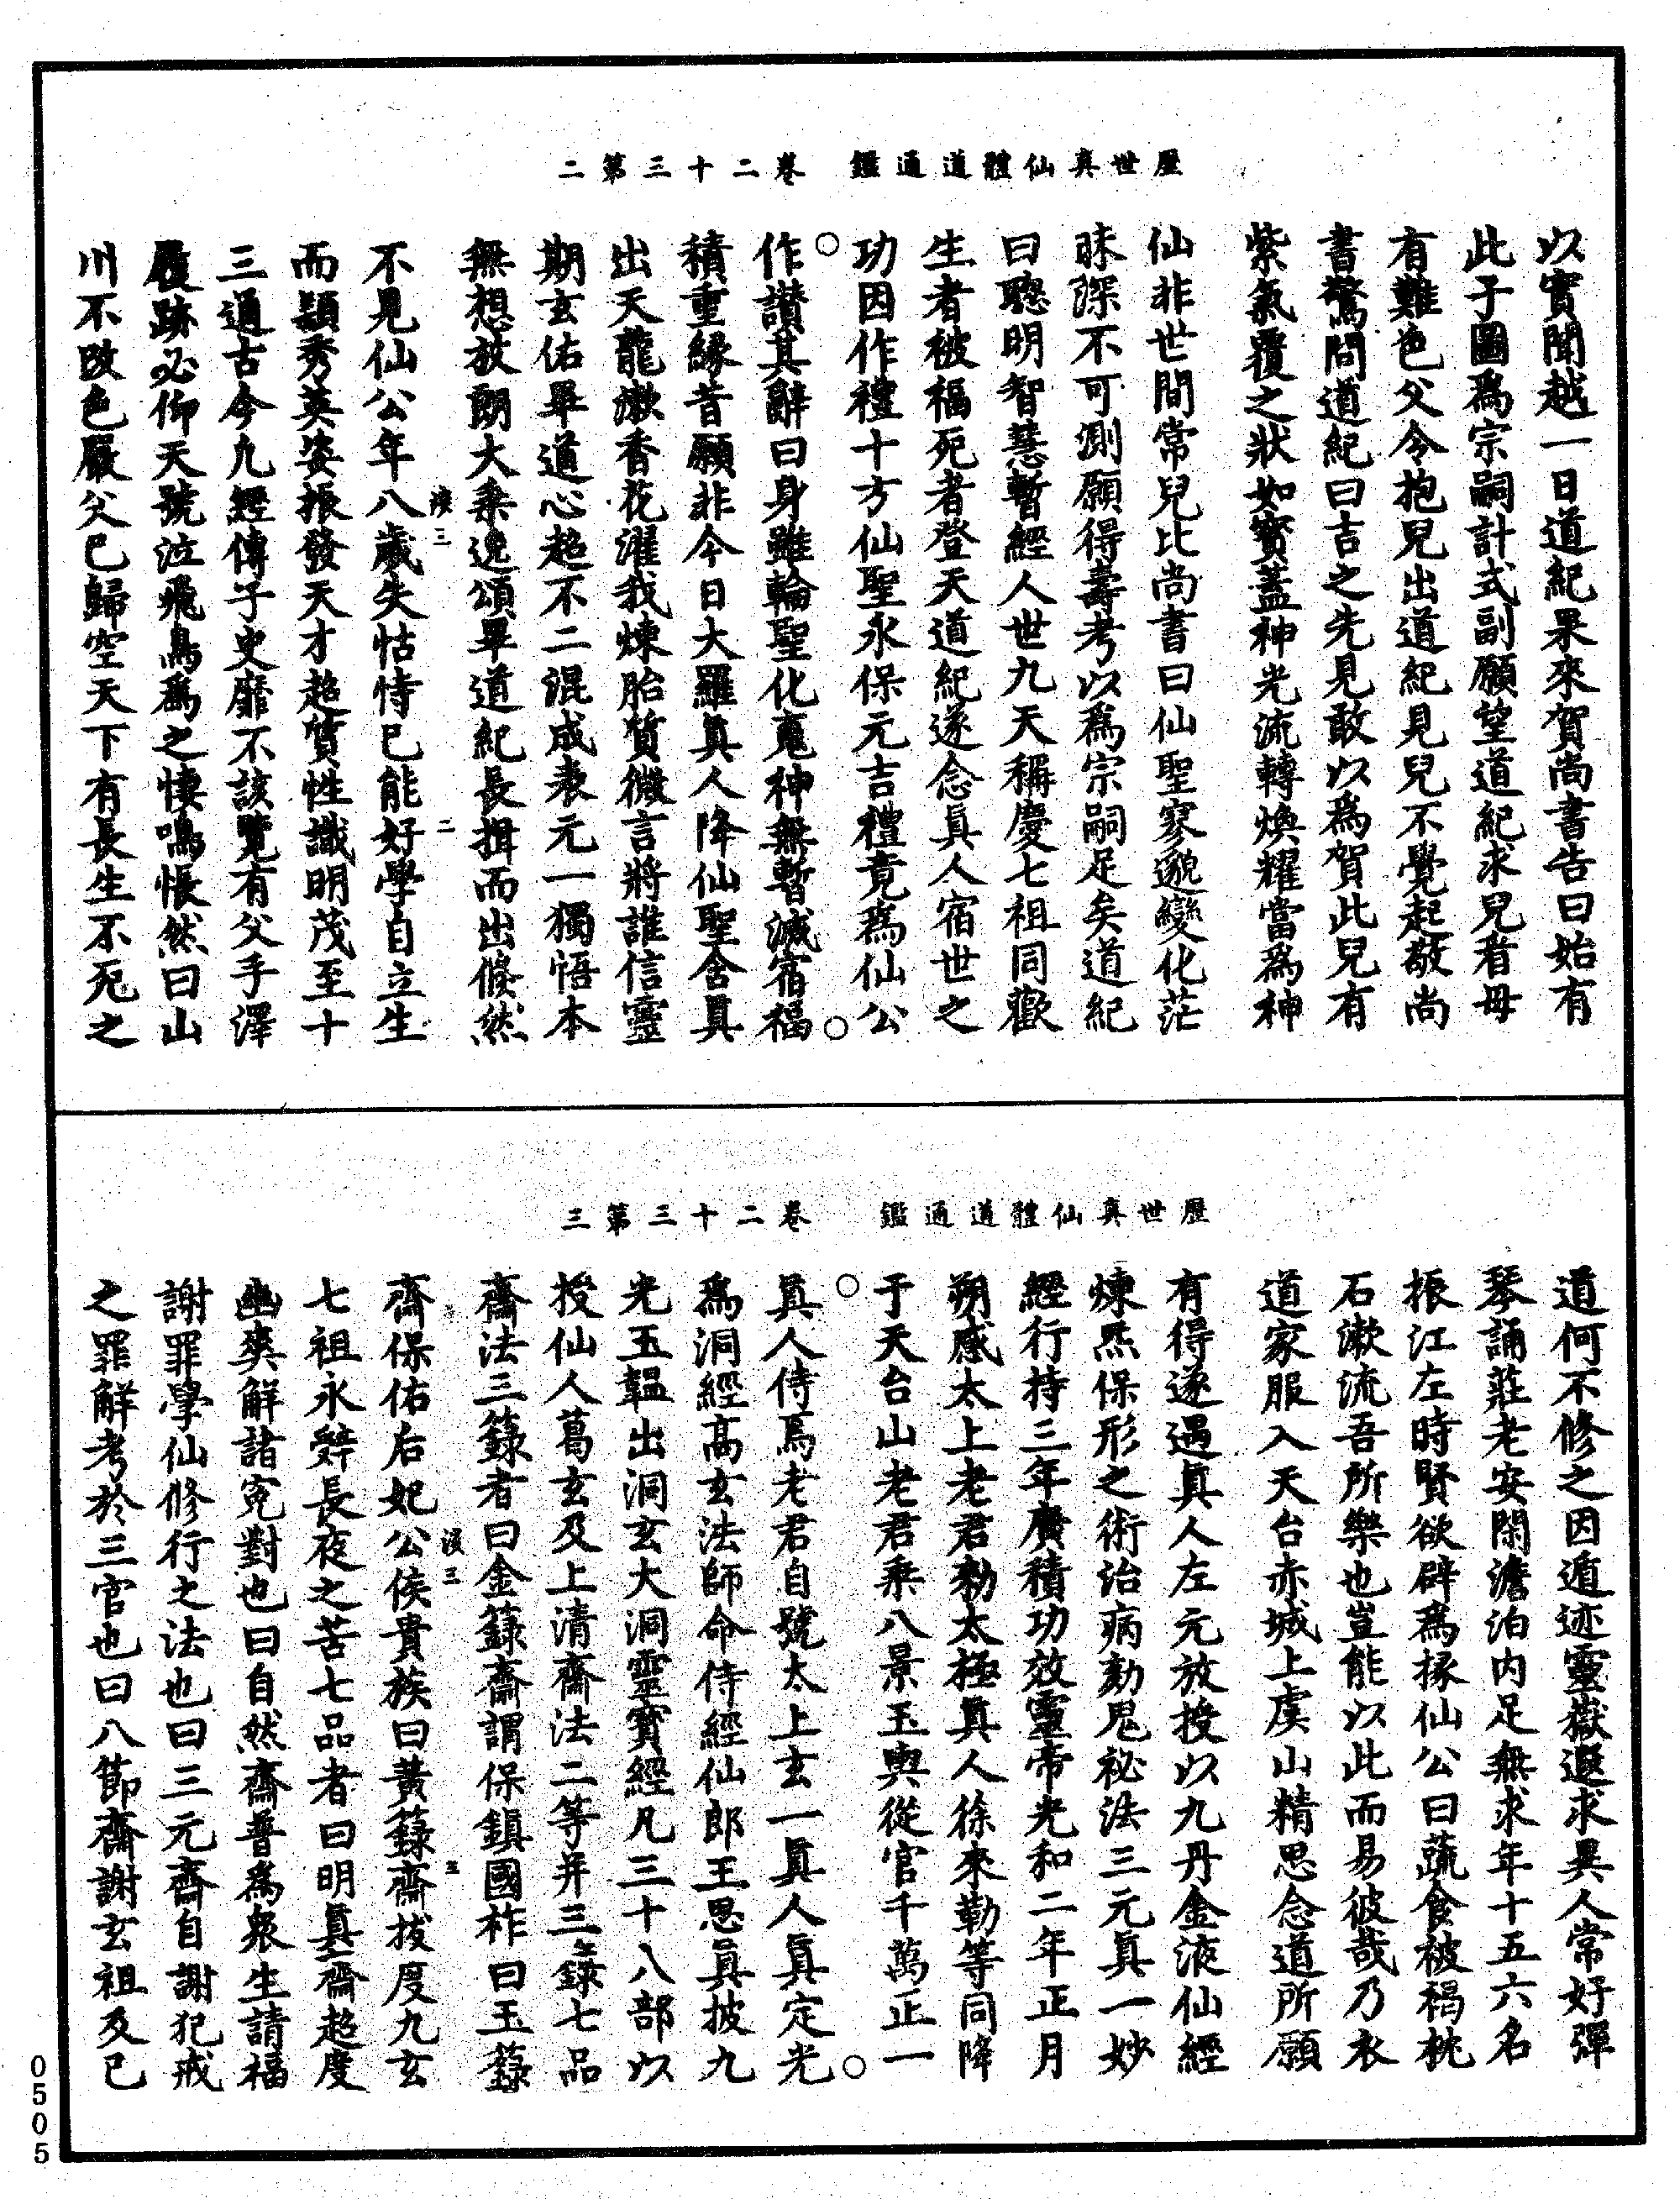 歷世真仙體道通鑑　卷二十三第二
以實聞越一日道紀果來賀尚書告曰始有
此子圖爲宗嗣計式副願望道紀求兒看母
有難色父令抱兒出道紀見兒不覺起敬尚
書驚問道紀曰吉之先見敢以爲賀此兒有
紫氣覆之狀如寳蓋神光流轉煥耀當爲神
仙非世間常兒比尚書曰仙聖寥邈變化茫
昧深不可測願得壽考以爲宗嗣足矣道紀
曰聰明智慧暫經人世九天稱慶七祖同歡
生者被福死者登天道紀遂念真人宿世之
功因作禮十方仙聖永保元吉禮竟爲仙公
作讃其辭曰身雖輪聖化䰟神無暫滅宿福
積重緣昔願非今日大羅真人降仙聖舍真
出天龍潄香花濯我煉胎質微言將誰信靈
期玄佑畢道心超不二混成表元一獨悟本
無想放朗大乘逸頌畢道紀長揖而出倏然
不見仙公年八歲失怙恃已能好學自立生
漢三
二
而穎秀英姿振發天才超質性識明茂至十
三通古今九經傳子史靡不該覽有父手澤
履跡必仰天號泣飛鳥爲之悽鳴悵然曰山
川不改色嚴父已歸空天下有長生不死之
歷世真仙體道通鑑　卷二十三第三
道何不修之因遁迹靈嶽遐求異人常好彈
琴誦莊老安閑澹泊内足無求年十五六名
振江左時賢欲辟爲掾仙公曰蔬食被褐枕
石漱流吾所樂也豈能以此而易彼哉乃衣
道家服入天台赤城上虞山精思念道所願
有得遂遇真人左元放授以九丹金液仙經
煉炁保形之術治病劾鬼秘法三元真一妙
經行持三年廣積功效靈帝光和二年正月
朔感太上老君勑太極真人徐來勒等同降
于天台山老君乘八景玉輿從官千萬正一
真人侍焉老君自號太上玄一真人真定光
爲洞經高玄法師命侍經仙郎王思真披九
光玉韞出洞玄大洞靈寳經凡三十八部以
授仙人葛玄及上清齋法二等并三籙七品
齋法三籙者曰金籙齋謂保鎮國祚曰玉籙
齋保佑后妃公侯貴族曰黃籙齋拔度九玄
漢三
三
七祖永辤長夜之苦七品者曰明真齋超度
幽爽解諸冤對也曰自然齋普爲衆生請福
謝罪學仙修行之法也曰三元齋自謝犯戒
之罪解考於三官也曰八節齋謝玄祖及己
0505